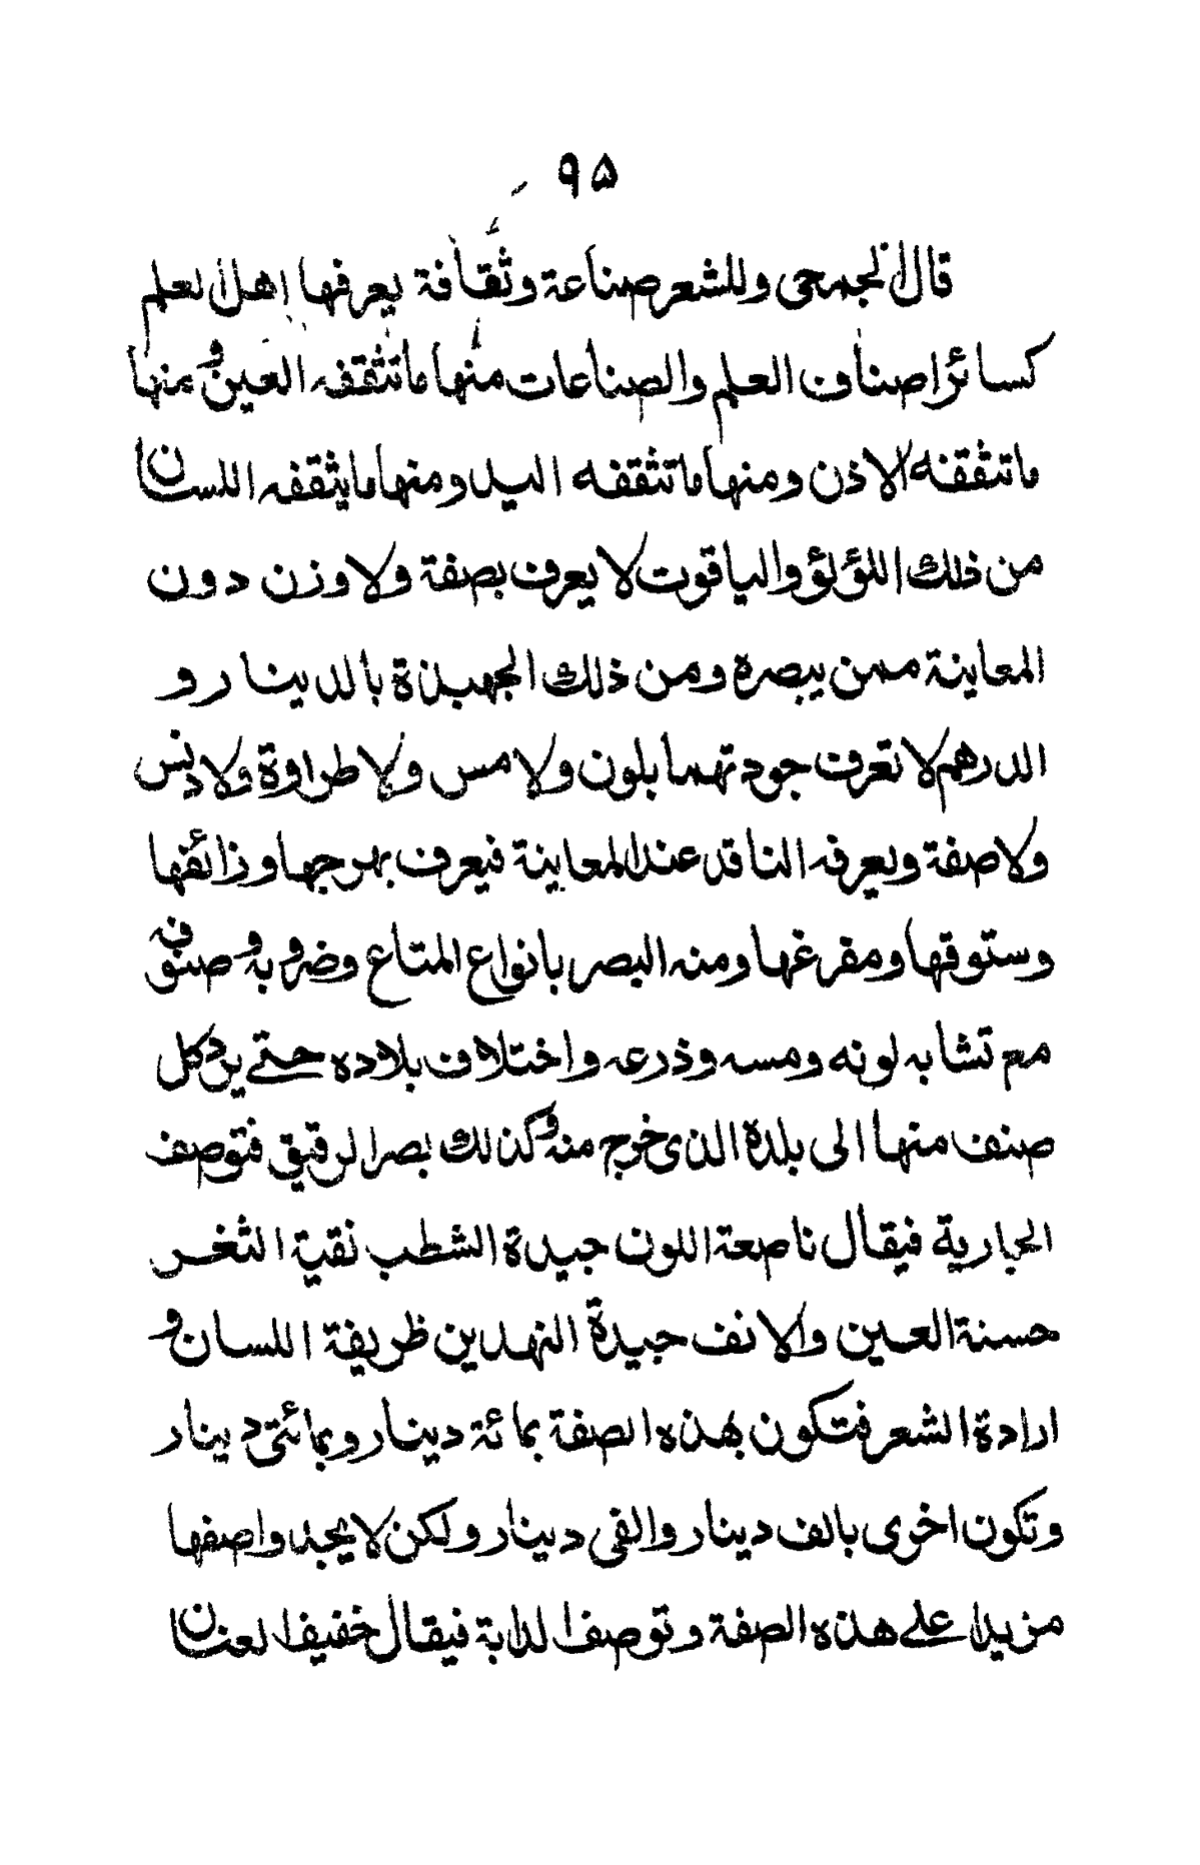 ۹۵
قال الجمحی وللشعر صناعة وثقافة یعرفها اهل العلم
کسائر اصناف العلم والصناعات منها ماتثقفه العین ومنها
ماتثقفه الاذن ومنها ماتثقفه الید ومنها مایثقفه اللسان
من ذلك اللؤلؤ والیاقوت لا یعرف بصفة ولا وزن دون
المعاینة ممن یبصره ومن ذلك الجهبذة بالدینار و
الدرهم لا تعرف جودتهما بلون ولا مس ولا طراوة ولا دنس
ولا صفة ویعرفه الناقد عند المعاینة فیعرف بهرجها وزائفها
وستوقها ومفرغها ومنه البصر بانواع المتاع وضروبه وصنوفه
مع تشابه لونه ومسه وذرعه واختلاف بلاده حتے یرد کل
صنف منها الی بلدة الذی خرج منه وکذلك بصر الرقیق فتوصف
الجاریة فیقال ناصعة اللون جیدة الشطب نقیة الثغر
حسنة العین والانف جیدة النهدین ظریفة اللسان و
ارادة الشعر فتکون بهذه الصفة بمائة دینار وبمائتی دینار
وتکون اخری بالف دینار والفی دینار ولکن لا یجد واصفها
مزیدا علے هذه الصفة وتوصف الدابة فیقال خفیف العنان